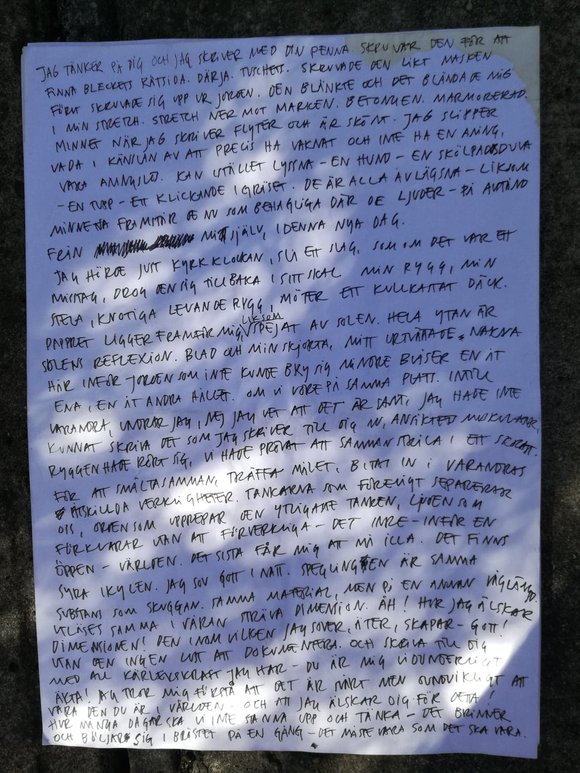 JAG TÄNKER PÅ DIG OCH JAG SKRIVER MED DIN PENNA. SKRUVAR DEN FÖR ATT
FINNA BLECKETS RÄTSIDA. DÄRJA. TUSCHETS. SKRUVADE DEN LIKT MASKEN
FÖRUT SKRUVADE SIG UPP UR JORDEN. DEN BLÄNKTE OCH DET BLÄNDADE MIG
I MIN STRETCH. STRETCH NER MOT MARKEN. BETONGEN. MARMORERAD.
MINNET NÄR JAG SKRIVER FLYTER OCH ÄR SKÖNT. JAG SLIPPER
VADA I KÄNSLAN AV ATT PRECIS HA VAKNAT OCH INTE HA EN ANING,
VARA ANINGSLÖ. KAN ISTÄLLET LYSSNA – EN HUND – EN SKÖLPADDSDUVA
– EN TUPP – ETT KLICKANDE I GRÄSET. DE ÄR ALLA AVLÄGSNA – LIKSOM
MINNENA FRAMSTÅR DE NU SOM BEHAGLIGA DÄR DE LJUDER – PÅ AVSTÅND
FRÅN MIG SJÄLV, I DENNA NYA DAG.
JAG HÖRDE JUST KYRKKLOCKAN, SLÅ ETT SLAG, SOM OM DET VAR ETT
MISSTAG, DROG DEN SIG TILLBAKA I SITT SKAL. MIN RYGG, MIN
STELA, KNOTIGA LEVANDE RYGG, MÖTER ETT KULLKASTAT DÄCK.
PAPPRET LIGGER FRAMFÖR MIG, LIKSOM UPPSPEJAT AV SOLEN. HELA YTAN ÄR
SOLENS REFLEXION. BLAD OCH MIN SKJORTA, MITT URTVÄTTADE, NAKNA
HÄR INFÖR JORDEN SOM INTE KUNDE BRY SIG MINDRE BLÅSER EN ÅT
ENA, EN ÅT ANDRA HÅLLET. OM VI VORE PÅ SAMMA PLATS. INTILL
VARANDRA, UNDRAR JAG, NEJ JAG VET ATT DET ÄR SANT, JAG HADE INTE
KUNNAT SKRIVA DET SOM JAG SKRIVER TILL DIG NU, ANSIKTETS MUSKULATUR,
RYGGEN HADE RÖRT SIG, VI HADE PRÖVAT ATT SAMMANSTRÅLA I ETT SKRATT.
FÖR ATT SMÄLTA SAMMAN, TRÄFFA MÅLET, BITAT IN I VARANDRAS
ÅTSKILDA VERKLIGHETER. TANKARNA SOM FÖRENLIGT SEPARERAR
OSS, ORDEN SOM UPPREPAR DEN YTLIGASTE TANKEN, LJUDEN SOM
FÖRKLARAR UTAN ATT FÖRVERKLIGA – DET INRE – INFÖR EN
ÖPPEN – VÄRLDEN. DET SISTA FÅR MIG ATT MÅ ILLA. DET FINNS
SYRA I KYLEN. JAG SOV GOTT I NATT. SPEGLINGEN ÄR SAMMA
SUBSTANS SOM SKUGGAN. SAMMA MATERIAL, MEN PÅ EN ANNAN VÅGLÄNGD
UTLÖSES SAMMA I VÅRAN STRÄVA DIMENSION. ÄH! HUR JAG ÄLSKAR
DIMENSIONEN! DEN INOM VILKEN JAG SOVER, ÄTER, SKAPAR – GOTT!
UTAN DEN INGEN LUST ATT DOKUMENTERA. OCH SKRIVA TILL DIG
MED ALL KÄRLEKSKRAFT JAG HAR – DU ÄR MIG VIDUNDERLIGT
ÄKTA! JAG TROR MIG FÖRSTÅ ATT DET ÄR SVÅRT MEN OUNDVIKLIGT ATT
VARA DEN DU ÄR I VÄRLDEN – OCH ATT JAG ÄLSKAR DIG FÖR DETTA!
HUR MÅNGA DAGAR SKA VI INTE STANNA UPP OCH TÄNKA – DET BRINNER
OCH BÖLJAR SIG I BRÖSTET PÅ EN GÅNG – DET MÅSTE VARA SOM DET SKA VARA.